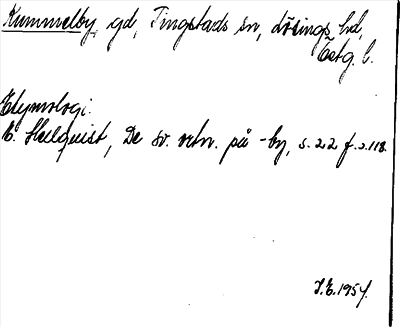 Kummelby, gd, Tingstads sn, Lösings hd,
Östg. l.
Etymologi.
E. Hellquist, De sv. ortn. på -by, s. 22 f. s. 118.
J.E. 1954.